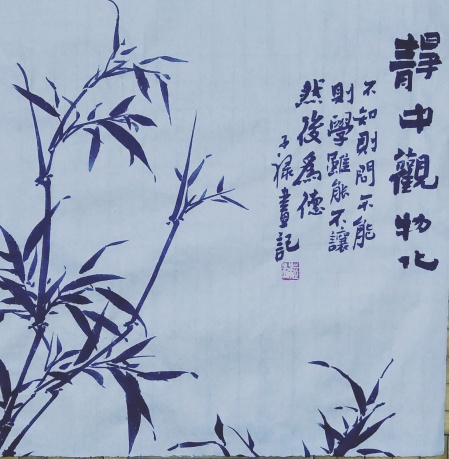 靜中觀物化
不知則問不能
則學雖能不讓
然後為德
子祿畫記